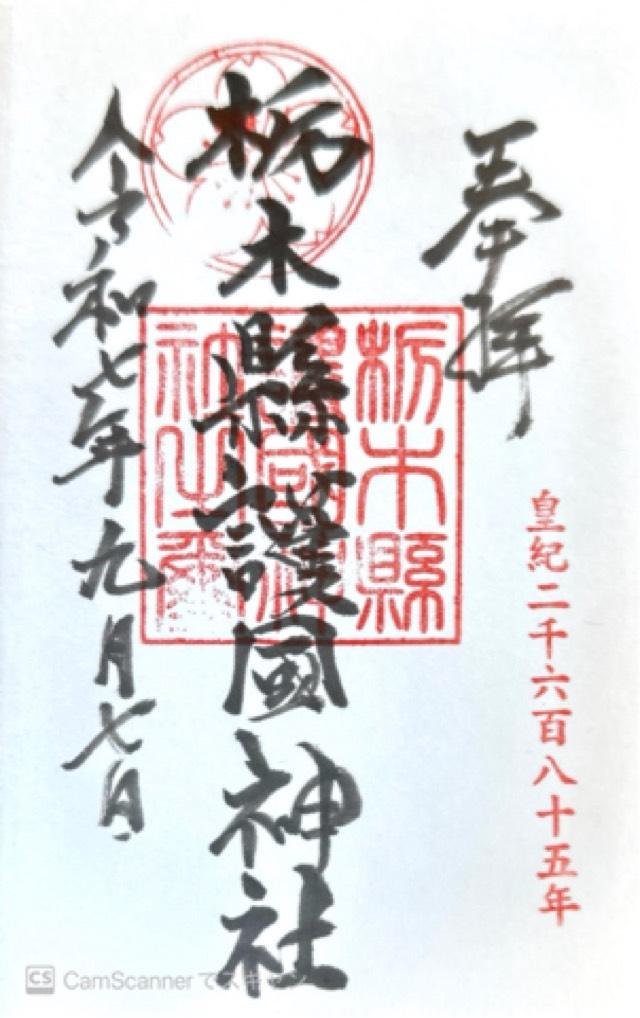 奉拝
皇紀二千六百八十五年
栃木縣護國神社
栃木縣
護國神
社之璽
令和七年九月七日
CS CamScanner でスキャン